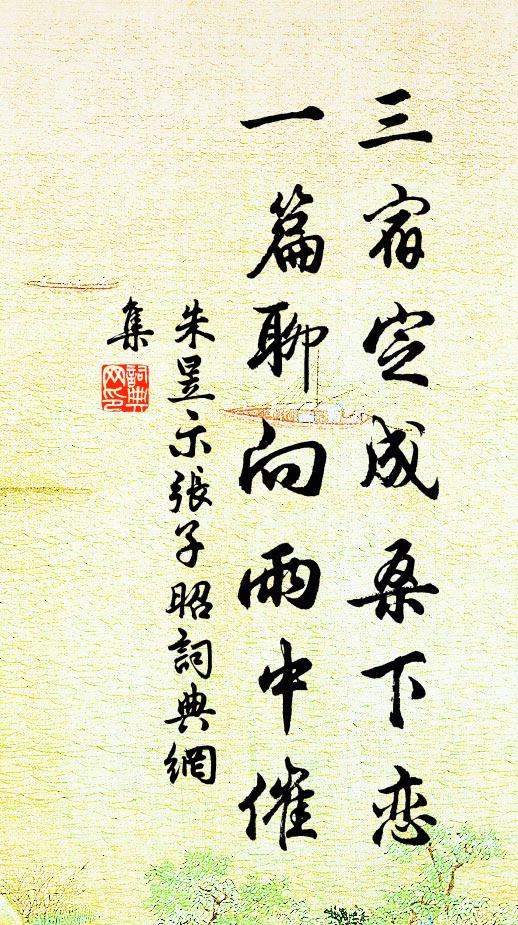 三宿定成桑下恋
一篇聊向雨中催
朱昱示張子昭詞典網
集
詞典
网印